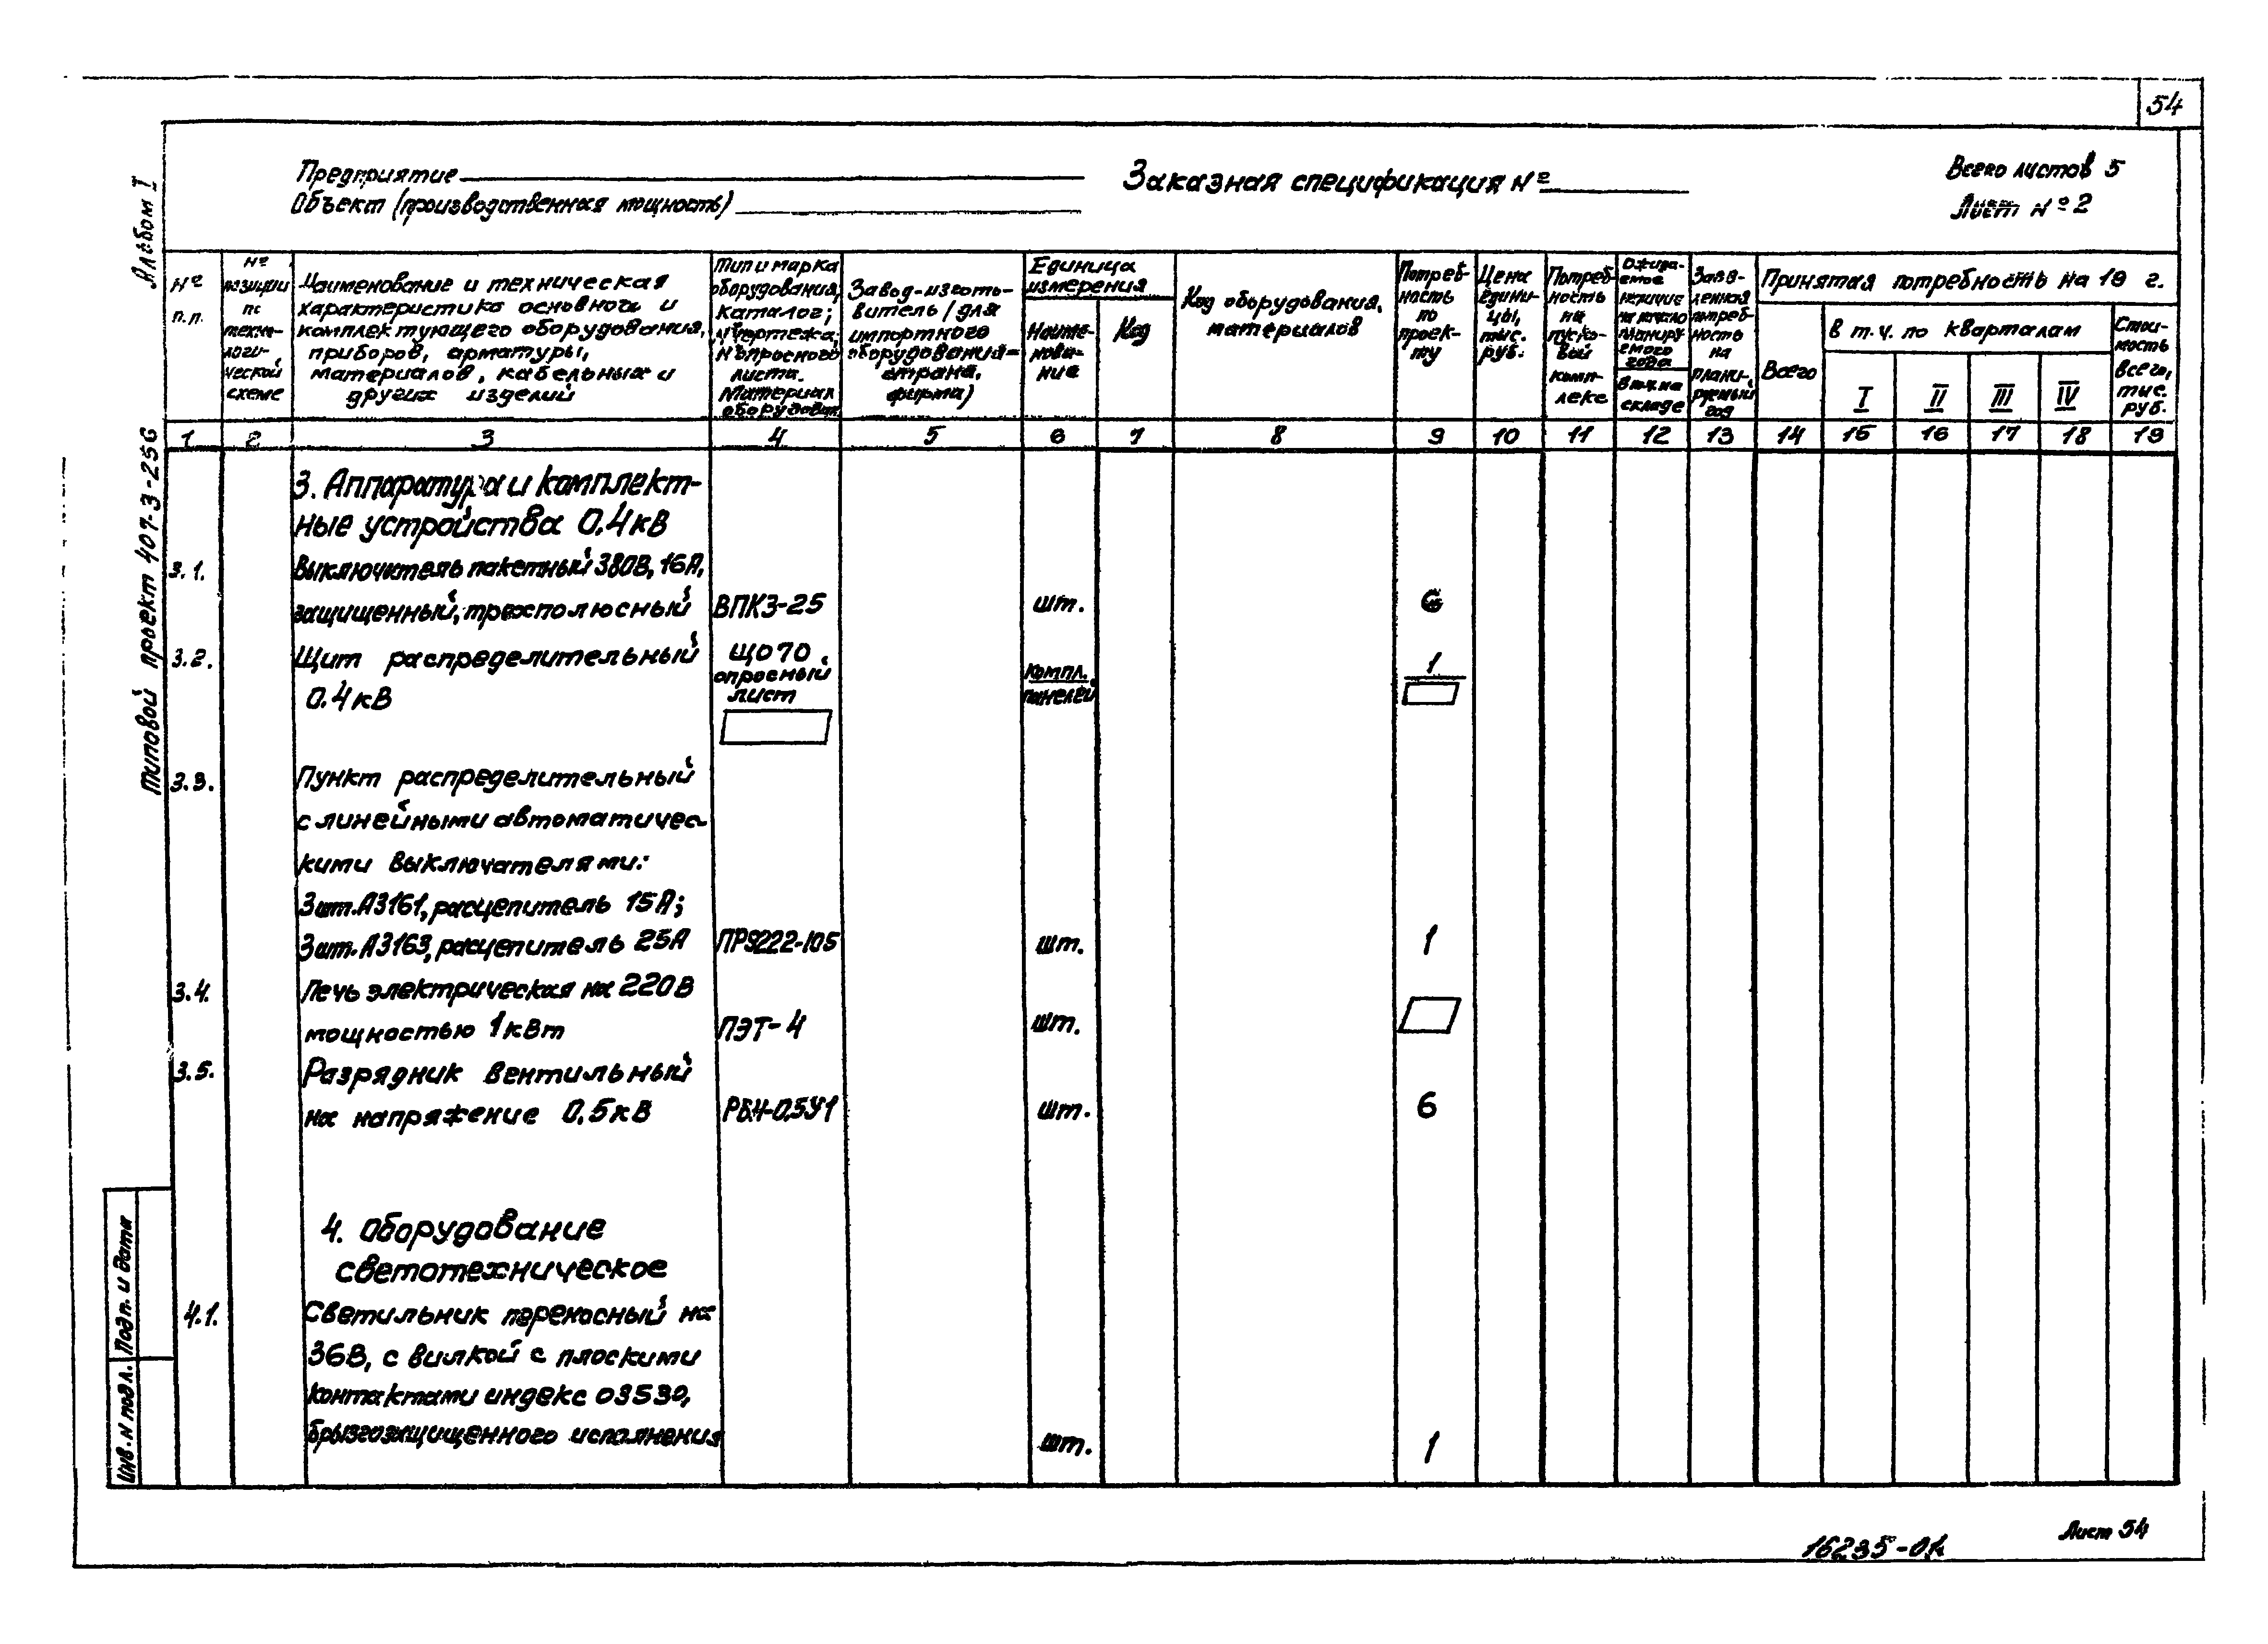 54
Альбом I
Типовой проект 407-3-256
Предприятие
Объект (производственная мощность)
Заказная спецификация №
Всего листов 5
Лист № 2
№ п.п.
№ позиции по техно-логи-ческой схеме
Наименование и техническая
характеристика основного и
комплектующего оборудования,
приборов, арматуры,
материалов, кабельных и
других изделий
Тип и марка
оборудования,
каталог;
№ чертежа;
№ опросного
листа.
Материал
оборудован.
Завод-изгото-
витель (для
импортного
оборудования-
страна,
фирма)
Единица
измерения
Наиме-
нова-
ние
Код
Код оборудования,
материалов
Потреб-
ность
по
проек-
ту
Цена
едини-
цы,
тыс.
руб.
Потреб-
ность
на
пуско-
вой
комп-
лекс
Ожида-
емое
наличие
на начало
планиру
емого
года
в т.ч. на
складе
Заяв-
ленная
потреб-
ность
на
плани-
руемый
год
Принятая потребность на 19 г.
Всего
в т.ч. по кварталам
I II III IV
Стои-
мость
всего,
тыс.
руб.
1 2 3 4 5 6 7 8 9 10 11 12 13 14 15 16 17 18 19
3. Аппаратура и комплект-
ные устройства 0.4кВ
3.1. Выключатель пакетный 380В, 16А,
защищенный, трехполюсный ВПК3-25 шт. 6
3.2. Щит распределительный ЩО70 компл. 1
0.4кВ опросный лист панелей
3.3. Пункт распределительный
с линейными автоматичес-
кими выключателями:
3шт. А3161, расцепитель 15А;
3шт. А3163, расцепитель 25А ПР9222-105 шт. 1
3.4. Печь электрическая на 220В
мощностью 1кВт ПЭТ-4 шт.
3.5. Разрядник вентильный
на напряжение 0,5кВ РВН-0,5У1 шт. 6
4. Оборудование
светотехническое
4.1. Светильник переносный на
36В, с вилкой с плоскими
контактами индекс 03530,
брызгозащищенного исполнения шт. 1
Подп. и дата
Инв. N подл.
16235-01
Лист 54